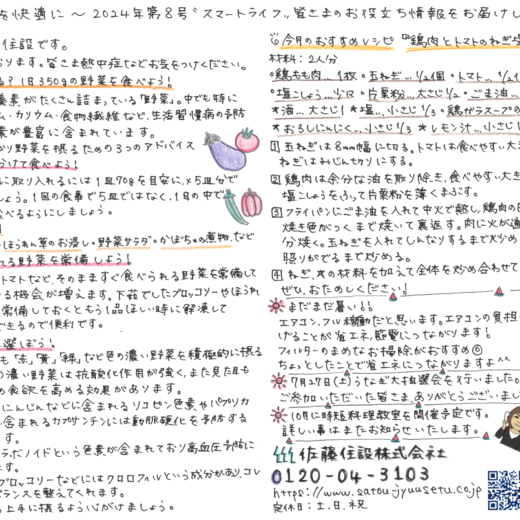 を快適に ～ 2024年 第8号 〝スマートライフ〟 皆さまのお役立ち情報をお届けし
住設です。
ります。皆さま熱中症などお気をつけください。
る? 1日350gの野菜を食べよう!
養素がたくさん詰まっている「野菜」。中でも特に
ム・カリウム・食物繊維など、生活習慣病の予防
素が豊富に含まれています。
かり野菜を摂るための3つのアドバイス
分けて食べよう!
に取り入れるには1皿70gを目安に、×5皿分で
しょう。1回の食事で5皿ではなく、1日の中で
べるようにしましょう。
ほうれん草のお浸し・野菜サラダ・かぼちゃの煮物、など
れる野菜を常備しよう!
トマトなど、そのまますぐ食べられる野菜を常備して
る機会が増えます。下茹でしたブロッコリーやほうれ
常備しておくともう1品ほしい時に解凍して
できるので便利です。
選ぼう!
も「赤」「黄」「緑」など色の濃い野菜を積極的に摂る
の濃い野菜は抗酸化作用が強く、また見た目も
め食欲を高める効果があります。
にんじんなどに含まれるリコピン色素やパプリカ
含まれるカプサンチンには動脈硬化を予防する
す。
ラボノイドという色素が含まれており高血圧予防に
す。
ブロッコリーなどにはクロロフィルという成分があり、コレ
バランスを整えてくれます。
上手に摂るよう心がけましょう。
今月のおすすめレシピ 『鶏肉とトマトのねぎ塩
材料: 2人分
・鶏もも肉…1枚 ・玉ねぎ…1/2個 ・トマト…1/
・塩こしょう…少々 ・片栗粉…大さじ ・ごま油…
★酒…大さじ1 ★塩…小さじ1/3 ★鶏ガラスープの
★おろしにんにく…小さじ1/3 ★レモン汁…小さじ
1 玉ねぎは8mm幅に切る。トマトは食べやすい大き
ねぎはみじん切りにする。
2 鶏肉は余分な油を取り除き、食べやすい大き
塩こしょうをふって片栗粉を薄くまぶす。
3 フライパンにごま油を入れて中火で熱し、鶏肉の
焼き色がつくまで焼いて裏返す。肉に火が通
分焼く。玉ねぎを入れてしんなりするまで炒め
照りがでるまで炒める。
4 ねぎ、★の材料を加えて全体を炒め合わせて
ぜひ、おためしください!
まだまだ暑い!!
エアコン、フル稼働だと思います。エアコンの負担
げることが省エネ、節電につながります!
フィルターのまめなお掃除がおすすめ◎
ちょっとしたことで省エネにつながりますよ^^
7月27日(土)うなぎ大抽選会を行いました。
ご参加いただいた皆さま、ありがとうござい
10月に時短料理教室を開催予定です。
詳しい事はまたお知らせいたします。
佐藤住設株式会社
0120-04-3103
https://www.satoujyuusetu.co.jp
定休日: 土.日.祝